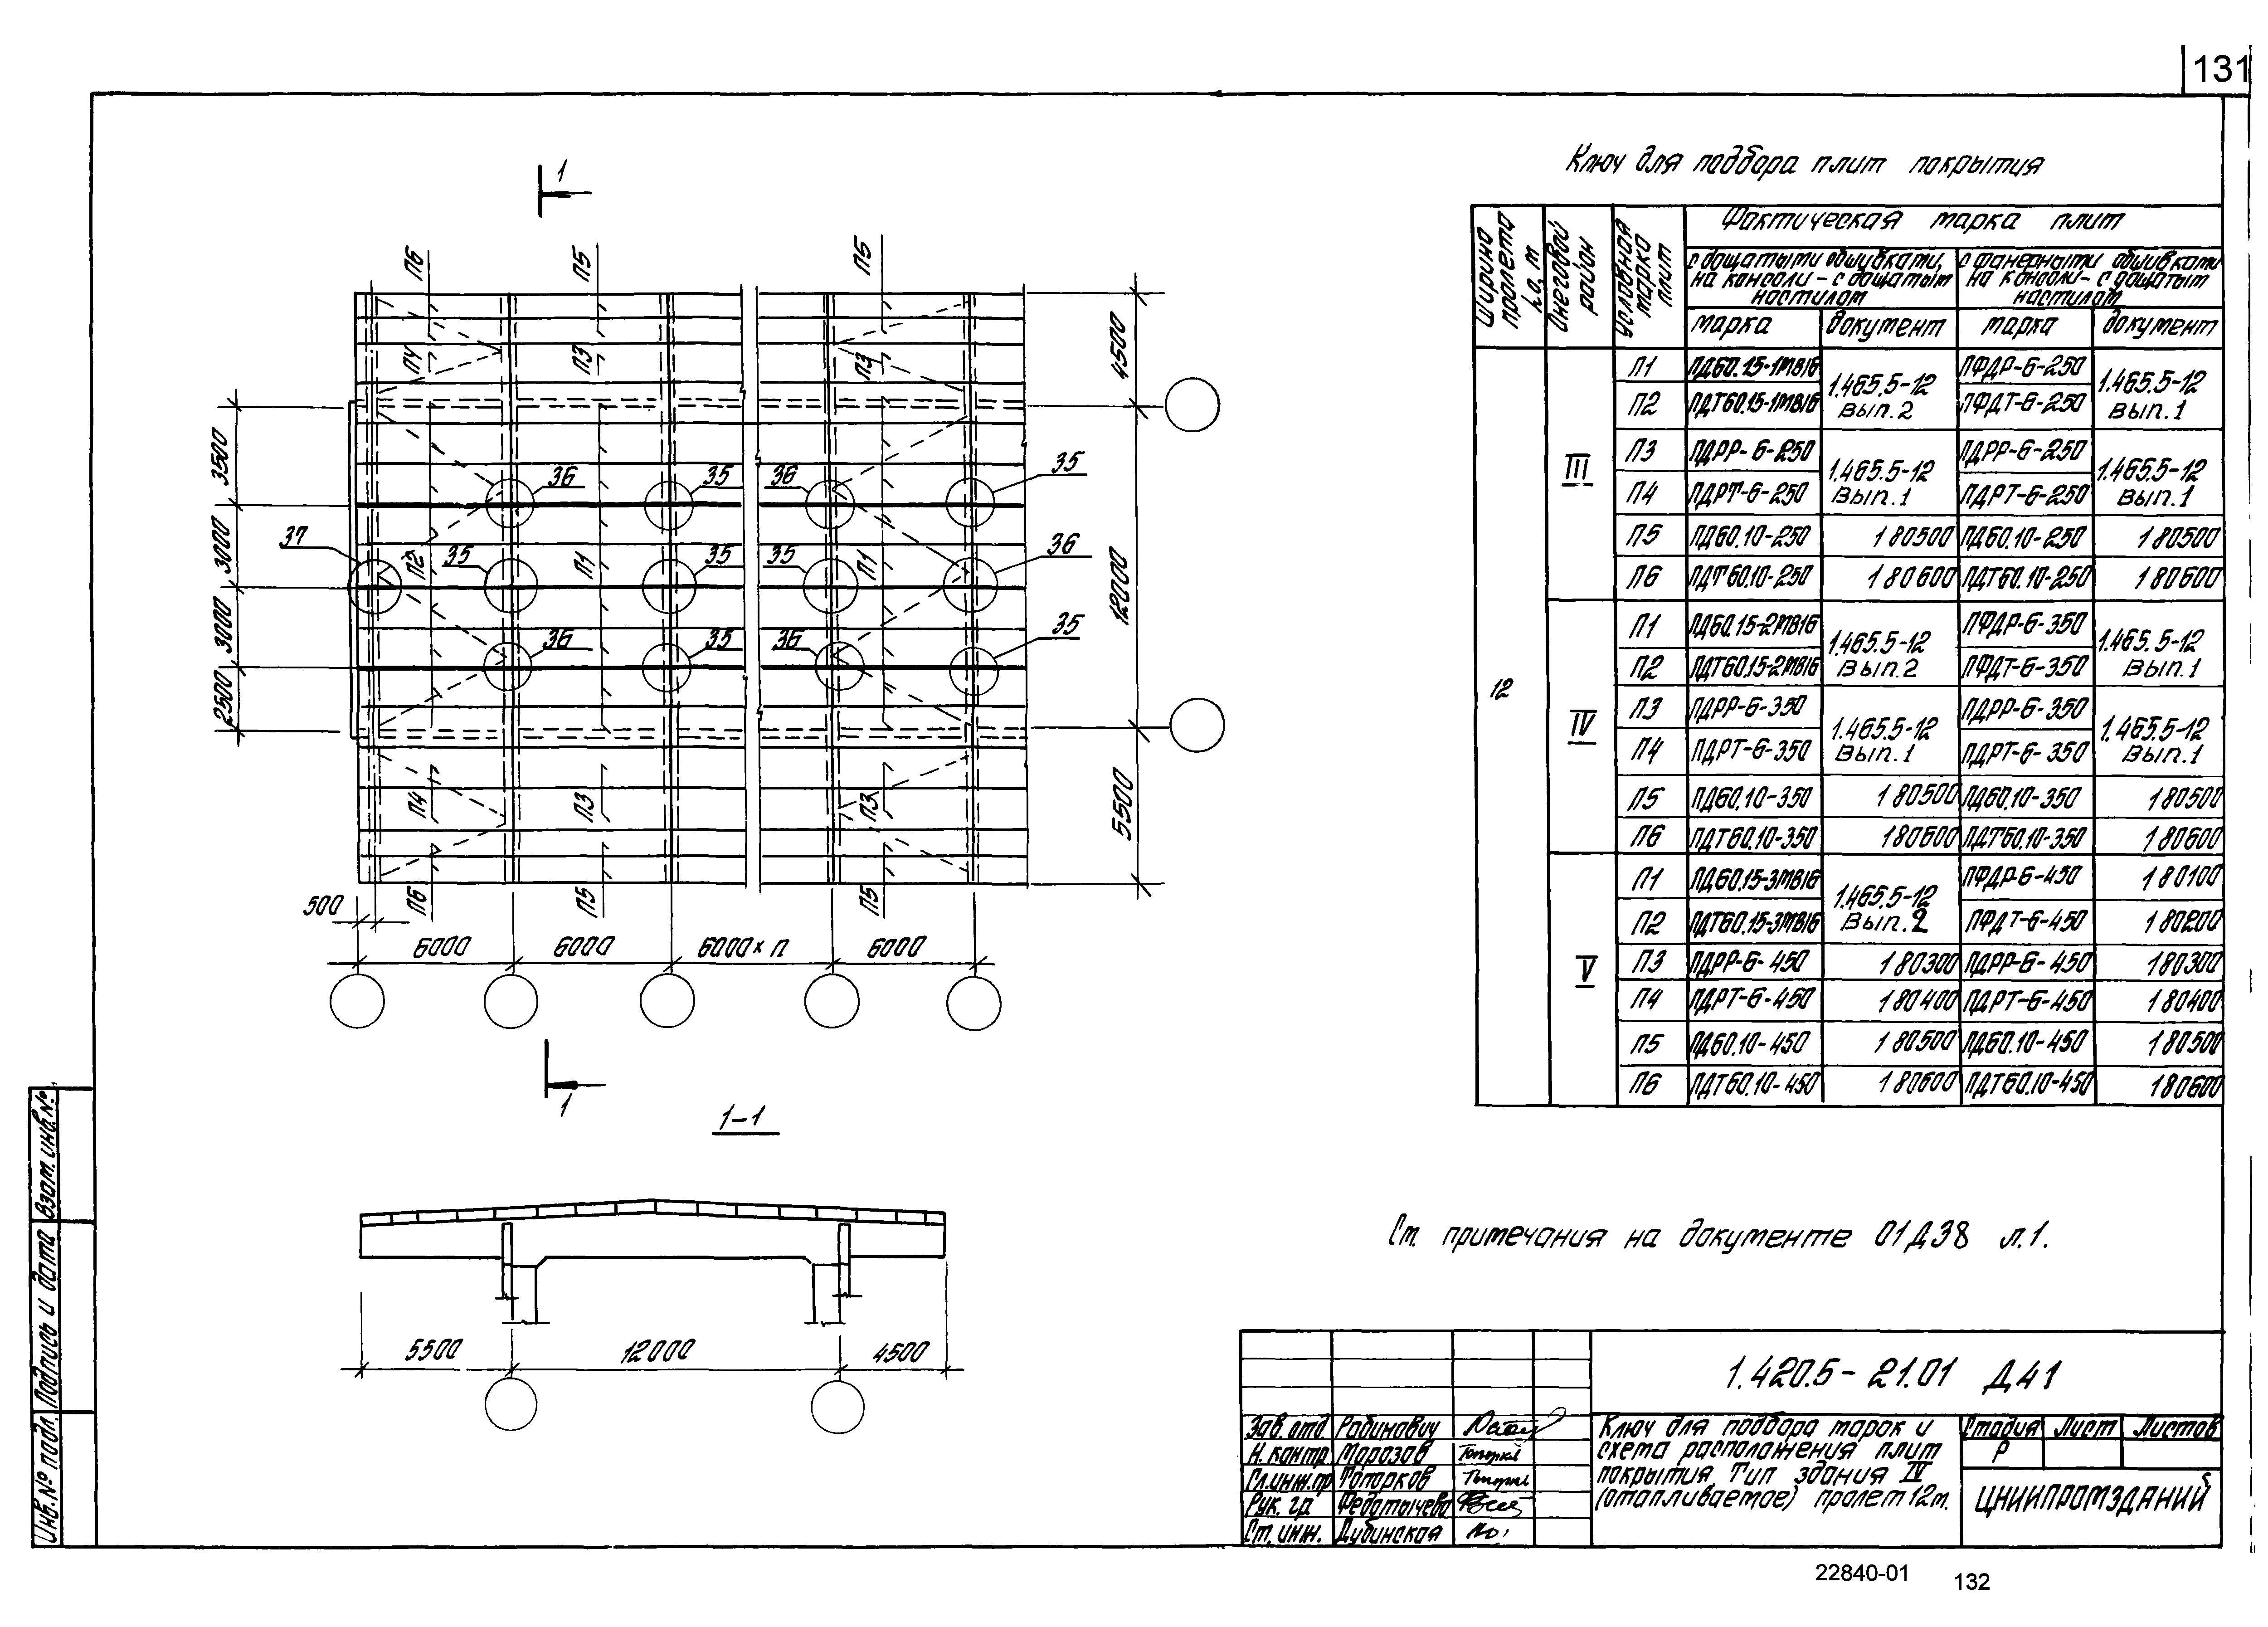 131
Ключ для подбора плит покрытия
Ширина пролета L0, м
Снеговой район
Условная марка плит
Фактическая марка плит
с дощатыми обшивками, на консоли - с дощатым настилом
с фанерными обшивками на консоли - с дощатым настилом
марка документ марка документ
12
III
П1 ПД60.15-1МВ16 1.465.5-12 Вып.2 ПФДР-6-250 1.465.5-12 Вып.1
П2 ПДТ60.15-1МВ16 ПФДТ-6-250
П3 ПДРР-6-250 1.465.5-12 Вып.1 ПДРР-6-250 1.465.5-12 Вып.1
П4 ПДРТ-6-250 ПДРТ-6-250
П5 ПД60.10-250 180500 ПД60.10-250 180500
П6 ПДТ60.10-250 180600 ПДТ60.10-250 180600
IV
П1 ПД60.15-2МВ16 1.465.5-12 Вып.2 ПФДР-6-350 1.465.5-12 Вып.1
П2 ПДТ60.15-2МВ16 ПФДТ-6-350
П3 ПДРР-6-350 1.465.5-12 Вып.1 ПДРР-6-350 1.465.5-12 Вып.1
П4 ПДРТ-6-350 ПДРТ-6-350
П5 ПД60.10-350 180500 ПД60.10-350 180500
П6 ПДТ60.10-350 180600 ПДТ60.10-350 180600
V
П1 ПД60.15-3МВ16 1.465.5-12 Вып.2 ПФДР-6-450 180100
П2 ПДТ60.15-3МВ16 ПФДТ-6-450 180200
П3 ПДРР-6-450 180300 ПДРР-6-450 180300
П4 ПДРТ-6-450 180400 ПДРТ-6-450 180400
П5 ПД60.10-450 180500 ПД60.10-450 180500
П6 ПДТ60.10-450 180600 ПДТ60.10-450 180600
1
П6 П5 П5
П4 П3 П3
4500
3500
36 35 36 35
3000
37 П2 35 П1 35 35 П1 36
12000
3000
36 35 36 35
2500
П4 П3 П3
5500
П6 П5 П5
500
6000 6000 6000×п 6000
1
1-1
5500 12000 4500
См. примечания на документе 01Д38 л.1.
1.420.5-21.01 Д41
Зав. отд. Рабинович
Н. контр Морозов
Гл.инж.пр Топорков
Рук. гр. Федотычева
Ст. инж. Дубинская
Ключ для подбора марок и
схема расположения плит
покрытия. Тип здания IV
(отапливаемое) пролет 12м.
Стадия Лист Листов
Р
ЦНИИПРОМЗДАНИЙ
Взам. инв. №
Подпись и дата
Инв. № подл.
22840-01 132